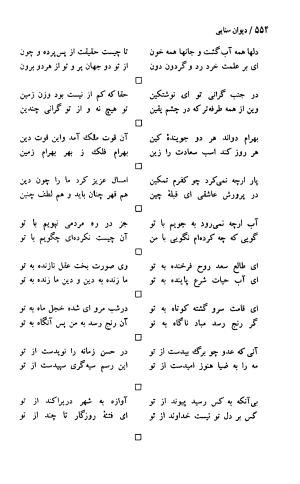 ۵۵۴ / دیوان سنایی
دلها همه آب گشت و جانها همه خون تا چیست حقیقت از پس پرده و چون
ای بر علمت خرد رد و گردون دون از تو دو جهان پر و تو از هردو برون
در جنب گرانی تو ای نوشتکین حقا که کم از نیست بود وزن زمین
وین از همه طرفه‌تر که در چشم یقین تو هیچ نه و از تو گرانی چندین
بهرام دواند هر دو جویندهٔ کین آن قوت ملک آمد واین قوت دین
هر روز کند اسب سعادت را زین بهرام فلک ز بهر بهرام زمین
پار ارچه نمی‌کرد چو کفرم تمکین امسال عزیز کرد ما را چون دین
در پرورش عاشقی ای قبلهٔ چین هم قهر چنان باید و هم لطف چنین
آب ارچه نمی‌رود به جویم با تو جز در ره مردمی نپویم با تو
گویی که چه کرده‌ام نگویی با من آن چیست نکرده‌ای چگویم با تو
ای طالع سعد روح فرخنده به تو وی صورت بخت عقل نازنده به تو
ای آب حیات شرع پاینده به تو ما زنده به دین و دین ما زنده به تو
ای قامت سرو گشته کوتاه به تو درشب مرو ای شده خجل ماه به تو
گر رنج رسد مباد ناگاه به تو آن رنج رسد به من پس آنگاه به تو
آنی که عدو چو برگ بیدست از تو در حسن زمانه را نویدست از تو
مه را به ضیا هنوز امیدست از تو این رسم سیه‌گری سپیدست از تو
بی‌آنکه به کس رسید پیوند از تو آوازه به شهر درپراکند از تو
کس بر دل تو نیست خداوند از تو ای فتنهٔ روزگار تا چند از تو